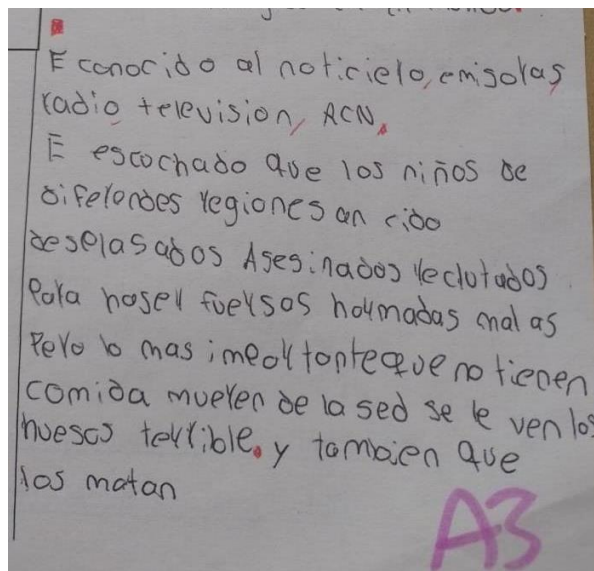 E conocido al noticielo, emisolas,
radio, television, ACN.
E escochado que los niños de
difelendes regiones an cido
deselasados Asesinados reclutados
Pala haser fuersos hormadas malas
Pero lo mas imeortonteque no tienen
comida mueren de la sed se le ven los
huesos terrible. y tambien que
los matan
A3